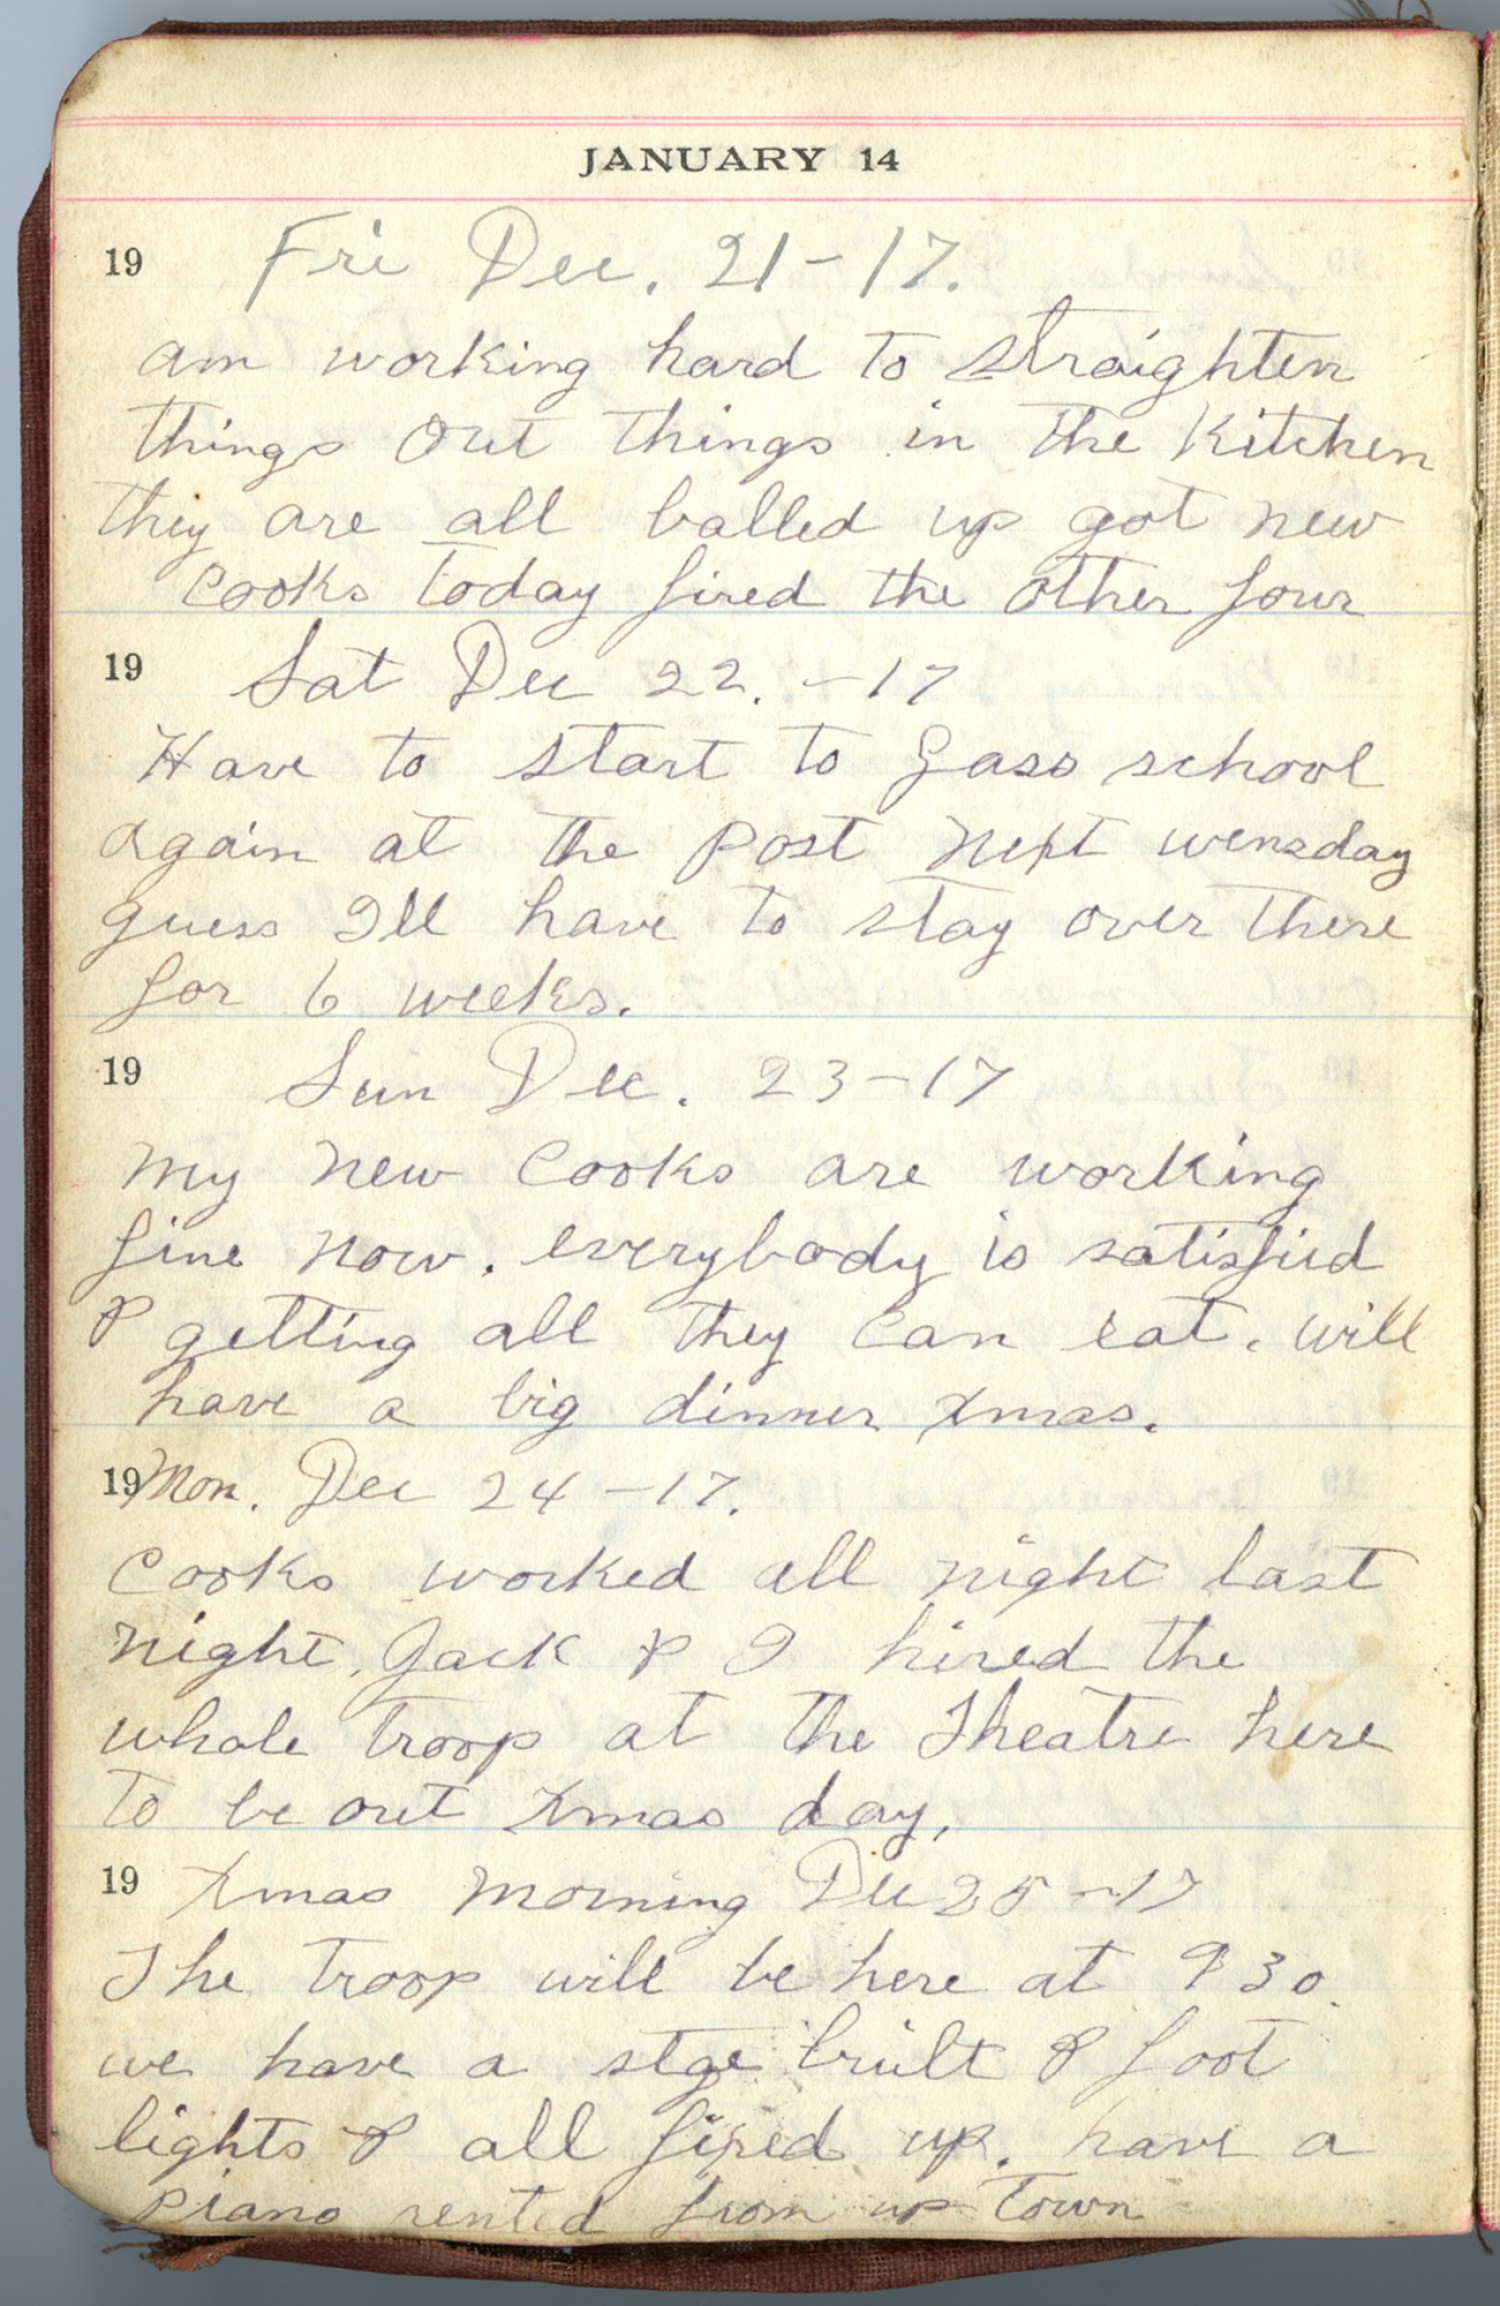 JANUARY 14
19 Fri Dec. 21-17.
am working hard to straighten
things out things in the Kitchen
they are all balled up got new
cooks today fired the other four
19 Sat Dec 22. -17
Have to start to Gass school
again at the post next wensday
guess Ill have to stay over there
for 6 weeks.
19 Sun Dec. 23-17
my new cooks are working
fine now. everybody is satisfied
& getting all they can eat. will
have a big dinner Xmas.
19 Mon. Dec 24-17.
Cooks worked all night last
night. Jack & I hired the
whole troop at the Theatre here
to be out Xmas day,
19 Xmas morning Dec 25-17
The troop will be here at 930.
we have a stge built & foot
lights & all fixed up. have a
piano rented from up town